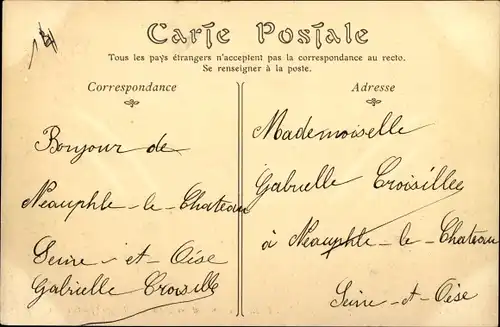 Carte Postale
Tous les pays étrangers n'acceptent pas la correspondance au recto.
Se renseigner à la poste.
Correspondance
Bonjour de
Neauphle-le-Chateau
Seine-et-Oise
Gabrielle Croisille
Adresse
Mademoiselle
Gabrielle Croisillee
à Neauphle-le-Chateau
Seine-et-Oise